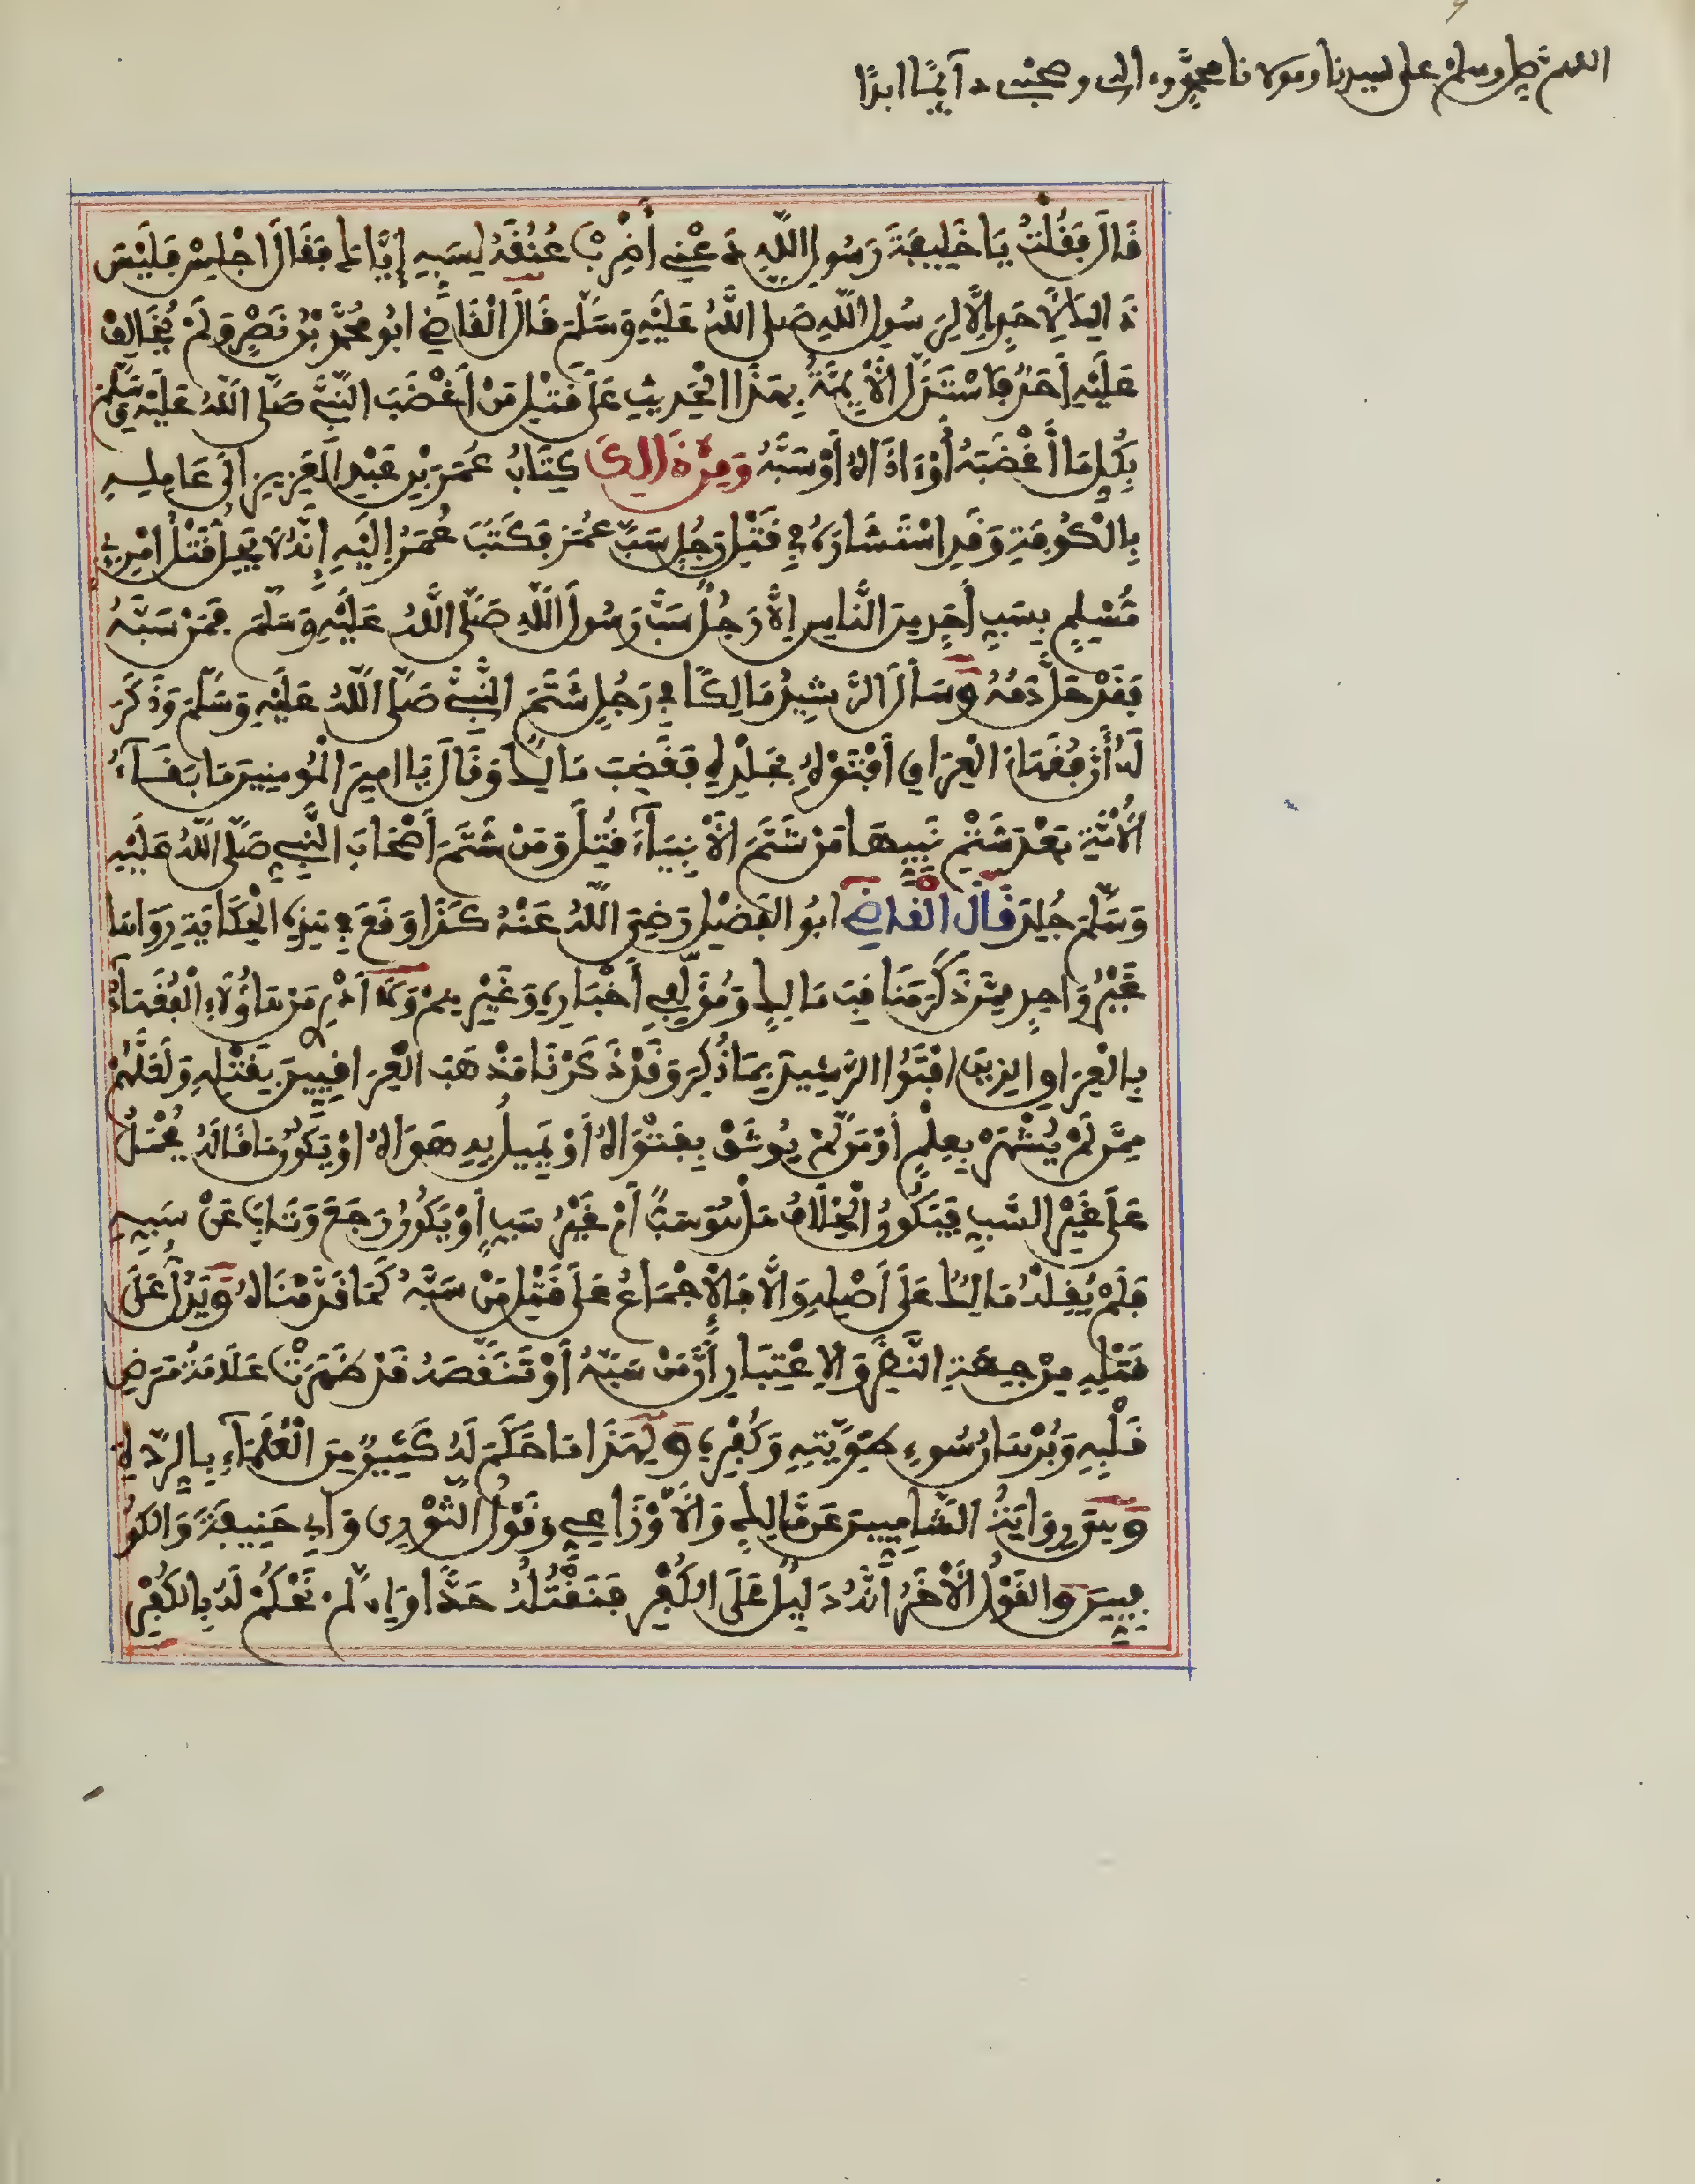 اللهم صل وسلم على سيدنا ومولانا محمد وءاله وصحبه دآئما ابدا
قَالَ فَقُلْتُ يَا خَلِيفَةَ رَسُولِ اللَّهِ دَعْنِي أَضْرِبْ عُنُقَهُ لِسَبِّهِ إِيَّاكَ فَقَالَ اجْلِسْ فَلَيْسَ
ذَالِكَ لِأَحَدٍ إِلَّا لِرَسُولِ اللَّهِ صَلَّى اللَّهُ عَلَيْهِ وَسَلَّمَ قَالَ الْقَاضِي ابُو مُحَمَّدِ بْنُ نَصْرٍ وَلَمْ يُخَالِفْ
عَلَيْهِ أَحَدٌ فَاسْتَدَلَّ الْأَيِمَّةُ بِهَذَا الْحَدِيثِ عَلَى قَتْلِ مَنْ أَغْضَبَ النَّبِيَّ صَلَّى اللَّهُ عَلَيْهِ وَسَلَّمَ
بِكُلِّ مَا أَغْضَبَهُ أَوْ ءَاذَاهُ أَوْ سَبَّهُ وَمِنْ ذَالِكَ كِتَابُ عُمَرَ بْنِ عَبْدِ الْعَزِيزِ الَى عَامِلِهِ
بِالْكُوفَةِ وَقَدِ اسْتَشَارَهُ فِي قَتْلِ رَجُلٍ سَبَّ عُمَرَ فَكَتَبَ عُمَرُ إِلَيْهِ إِنَّهُ لَا يَحِلُّ قَتْلُ امْرِئٍ
مُسْلِمٍ بِسَبِّ أَحَدٍ مِنَ النَّاسِ إِلَّا رَجُلٌ سَبَّ رَسُولَ اللَّهِ صَلَّى اللَّهُ عَلَيْهِ وَسَلَّمَ فَمَنْ سَبَّهُ
فَقَدْ حَلَّ دَمُهُ وَسَأَلَ الرَّشِيدُ مَالِكًا فِي رَجُلٍ شَتَمَ النَّبِيَّ صَلَّى اللَّهُ عَلَيْهِ وَسَلَّمَ وَذَكَرَ
لَهُ أَنَّ فُقَهَاءَ الْعِرَاقِ أَفْتَوْهُ بِجَلْدِهِ فَغَضِبَ مَالِكٌ وَقَالَ يَا امِيرَ الْمُومِنِينَ مَا بَقَآءُ
الْأُمَّةِ بَعْدَ شَتْمِ نَبِيِّهَا مَنْ شَتَمَ الْأَنْبِيَآءَ قُتِلَ وَمَنْ شَتَمَ أَصْحَابَ النَّبِيِّ صَلَّى اللَّهُ عَلَيْهِ
وَسَلَّمَ جُلِدَ قَالَ الْقَاضِي ابُو الْفَضْلِ رَضِيَ اللَّهُ عَنْهُ كَذَا وَقَعَ فِي هَذِهِ الْحِكَايَةِ رَوَاهَا
غَيْرُ وَاحِدٍ مِمَّنْ ذَكَرَ مَنَاقِبَ مَالِكٍ وَمُؤَلِّفِي أَخْبَارِهِ وَغَيْرِهِمْ وَلَا أَدْرِي مَنْ هَاؤُلَاءِ الْفُقَهَاءُ
بِالْعِرَاقِ الذِينَ افْتَوُا الرَّشِيدَ بِمَا ذُكِرَ وَقَدْ ذَكَرْنَا مَذْهَبَ الْعِرَاقِيِّينَ بِقَتْلِهِ وَلَعَلَّهُمْ
مِمَّنْ لَمْ يُشْهَرْ بِعِلْمٍ أَوْ مَنْ لَمْ يُوثَقْ بِفَتْوَاهُ أَوْ يَمِيلُ بِهِ هَوَاهُ اوْ يَكُونُ مَا قَالَهُ يُحْمَلُ
عَلَى غَيْرِ السَّبِّ فَيَكُونُ الْخِلَافُ هَلْ هُوَ سَبٌّ أَمْ غَيْرُ سَبٍّ أَوْ يَكُونُ رَجَعَ وَتَابَ عَنْ سَبِّهِ
فَلَمْ يَقُلْهُ مَالِكٌ عَلَى أَصْلِهِ وَالَّا فَالْإِجْمَاعُ عَلَى قَتْلِ مَنْ سَبَّهُ كَمَا قَدَّمْنَاهُ وَيَدُلُّ عَلَى
قَتْلِهِ مِنْ جِهَةِ النَّظَرِ وَالِاعْتِبَارِ أَنَّ مَنْ سَبَّهُ أَوْ تَنَقَّصَهُ قَدْ ظَهَرَتْ عَلَامَةُ مَرَضِ
قَلْبِهِ وَبُرْهَانُ سُوءِ طَوِيَّتِهِ وَكُفْرِهِ وَلِهَذَا مَا حَكَمَ لَهُ كَثِيرٌ مِنَ الْعُلَمَآءِ بِالرِّدَّةِ
وَهِيَ رِوَايَةُ الشَّامِيِّينَ عَنْ مَالِكٍ وَالْأَوْزَاعِي وَقَوْلُ الثَّوْرِي وَأَبِي حَنِيفَةَ وَالْكُو
فِيِّينَ وَالْقَوْلُ الْأَخَرُ أَنَّهُ دَلِيلٌ عَلَى الْكُفْرِ فَنَقْتُلُهُ حَدًّا وَإِن لَمْ نَحْكُمْ لَهُ بِالْكُفْرِ